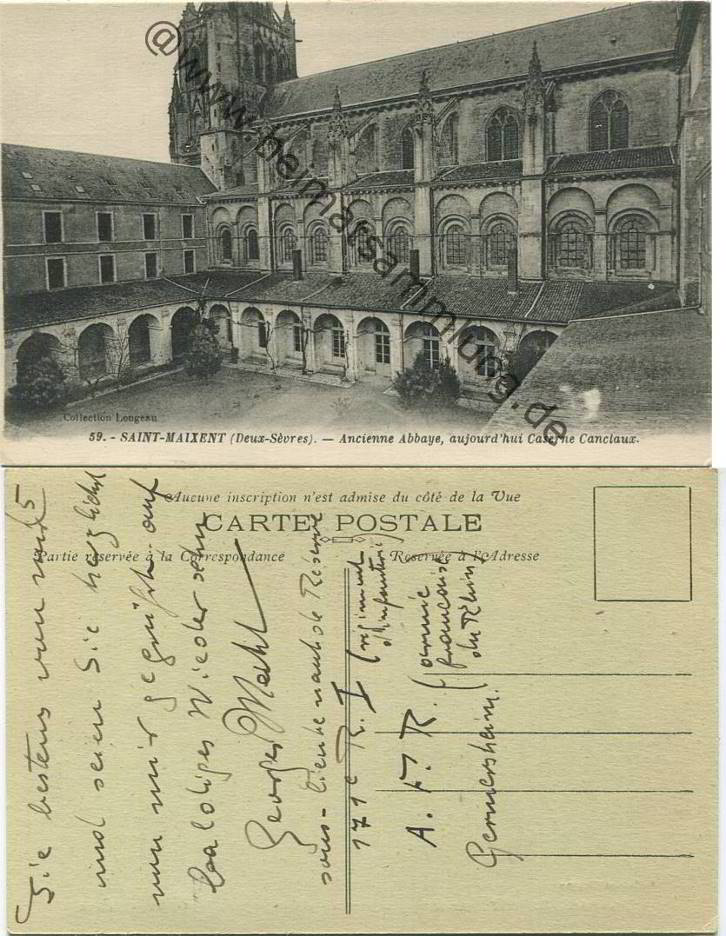 @www.heimatsammlung.de
Collection Lougeau
59. - SAINT-MAIXENT (Deux-Sèvres). — Ancienne Abbaye, aujourd'hui Caserne Canclaux.
Aucune inscription n'est admise du côté de la Vue
CARTE POSTALE
Partie réservée à la Correspondance
Réservée à l'Adresse
Sie bestens von
und seien Sie herzlichst
von mir gegrüßt. auf
baldiges Wiedersehn
Georges
sous-lieutenant de Réserve
171e R. I (régiment
d'infanterie)
A. F. R. (armée
française
du Rhin)
Germersheim.